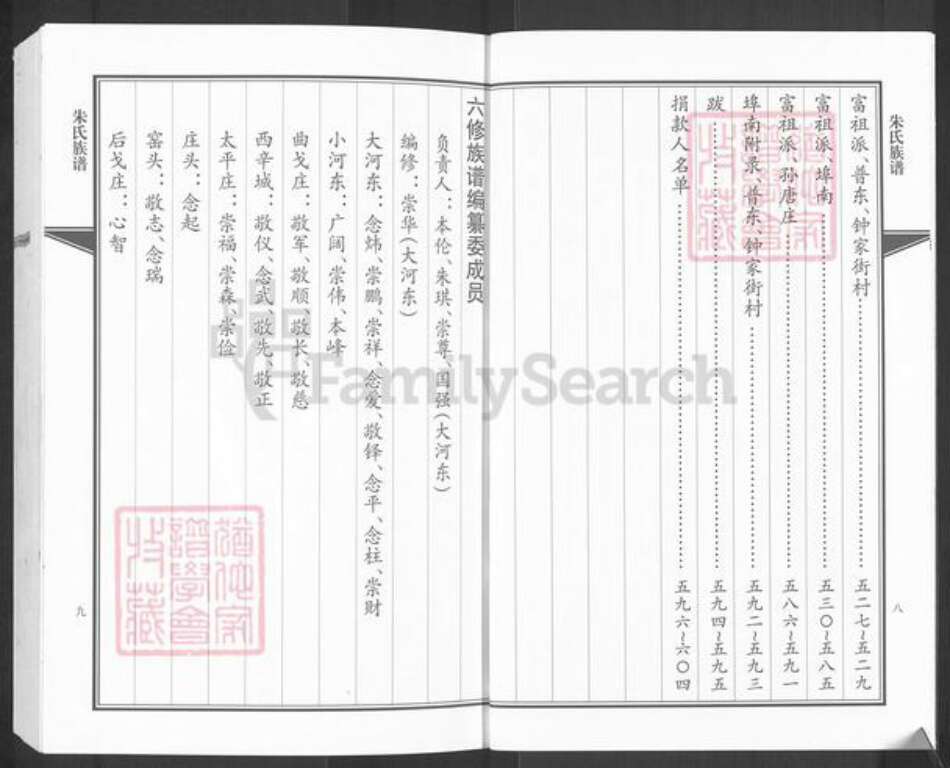 朱氏族谱
富祖派、普东、钟家街村……五二七~五二九
富祖派、埠南……五三〇~五八五
富祖派、孙唐庄……五八六~五九一
埠南附录、普东、钟家街村……五九二~五九三
跋……五九四~五九五
捐款人名单……五九六~六〇四
八
六修族谱编纂委成员
负责人：本伦、朱琪、崇尊、国强(大河东)
编修：崇华(大河东)
大河东：念炜、崇鹏、崇祥、念爱、敬铎、念平、念柱、崇财
小河东：广阔、崇伟、本峰
曲戈庄：敬军、敬顺、敬长、敬慈
西辛城：敬仪、念武、敬先、敬正
太平庄：崇福、崇森、崇俭
庄头：念起
窑头：敬志、念瑞
后戈庄：心智
朱氏族谱
九
FamilySearch